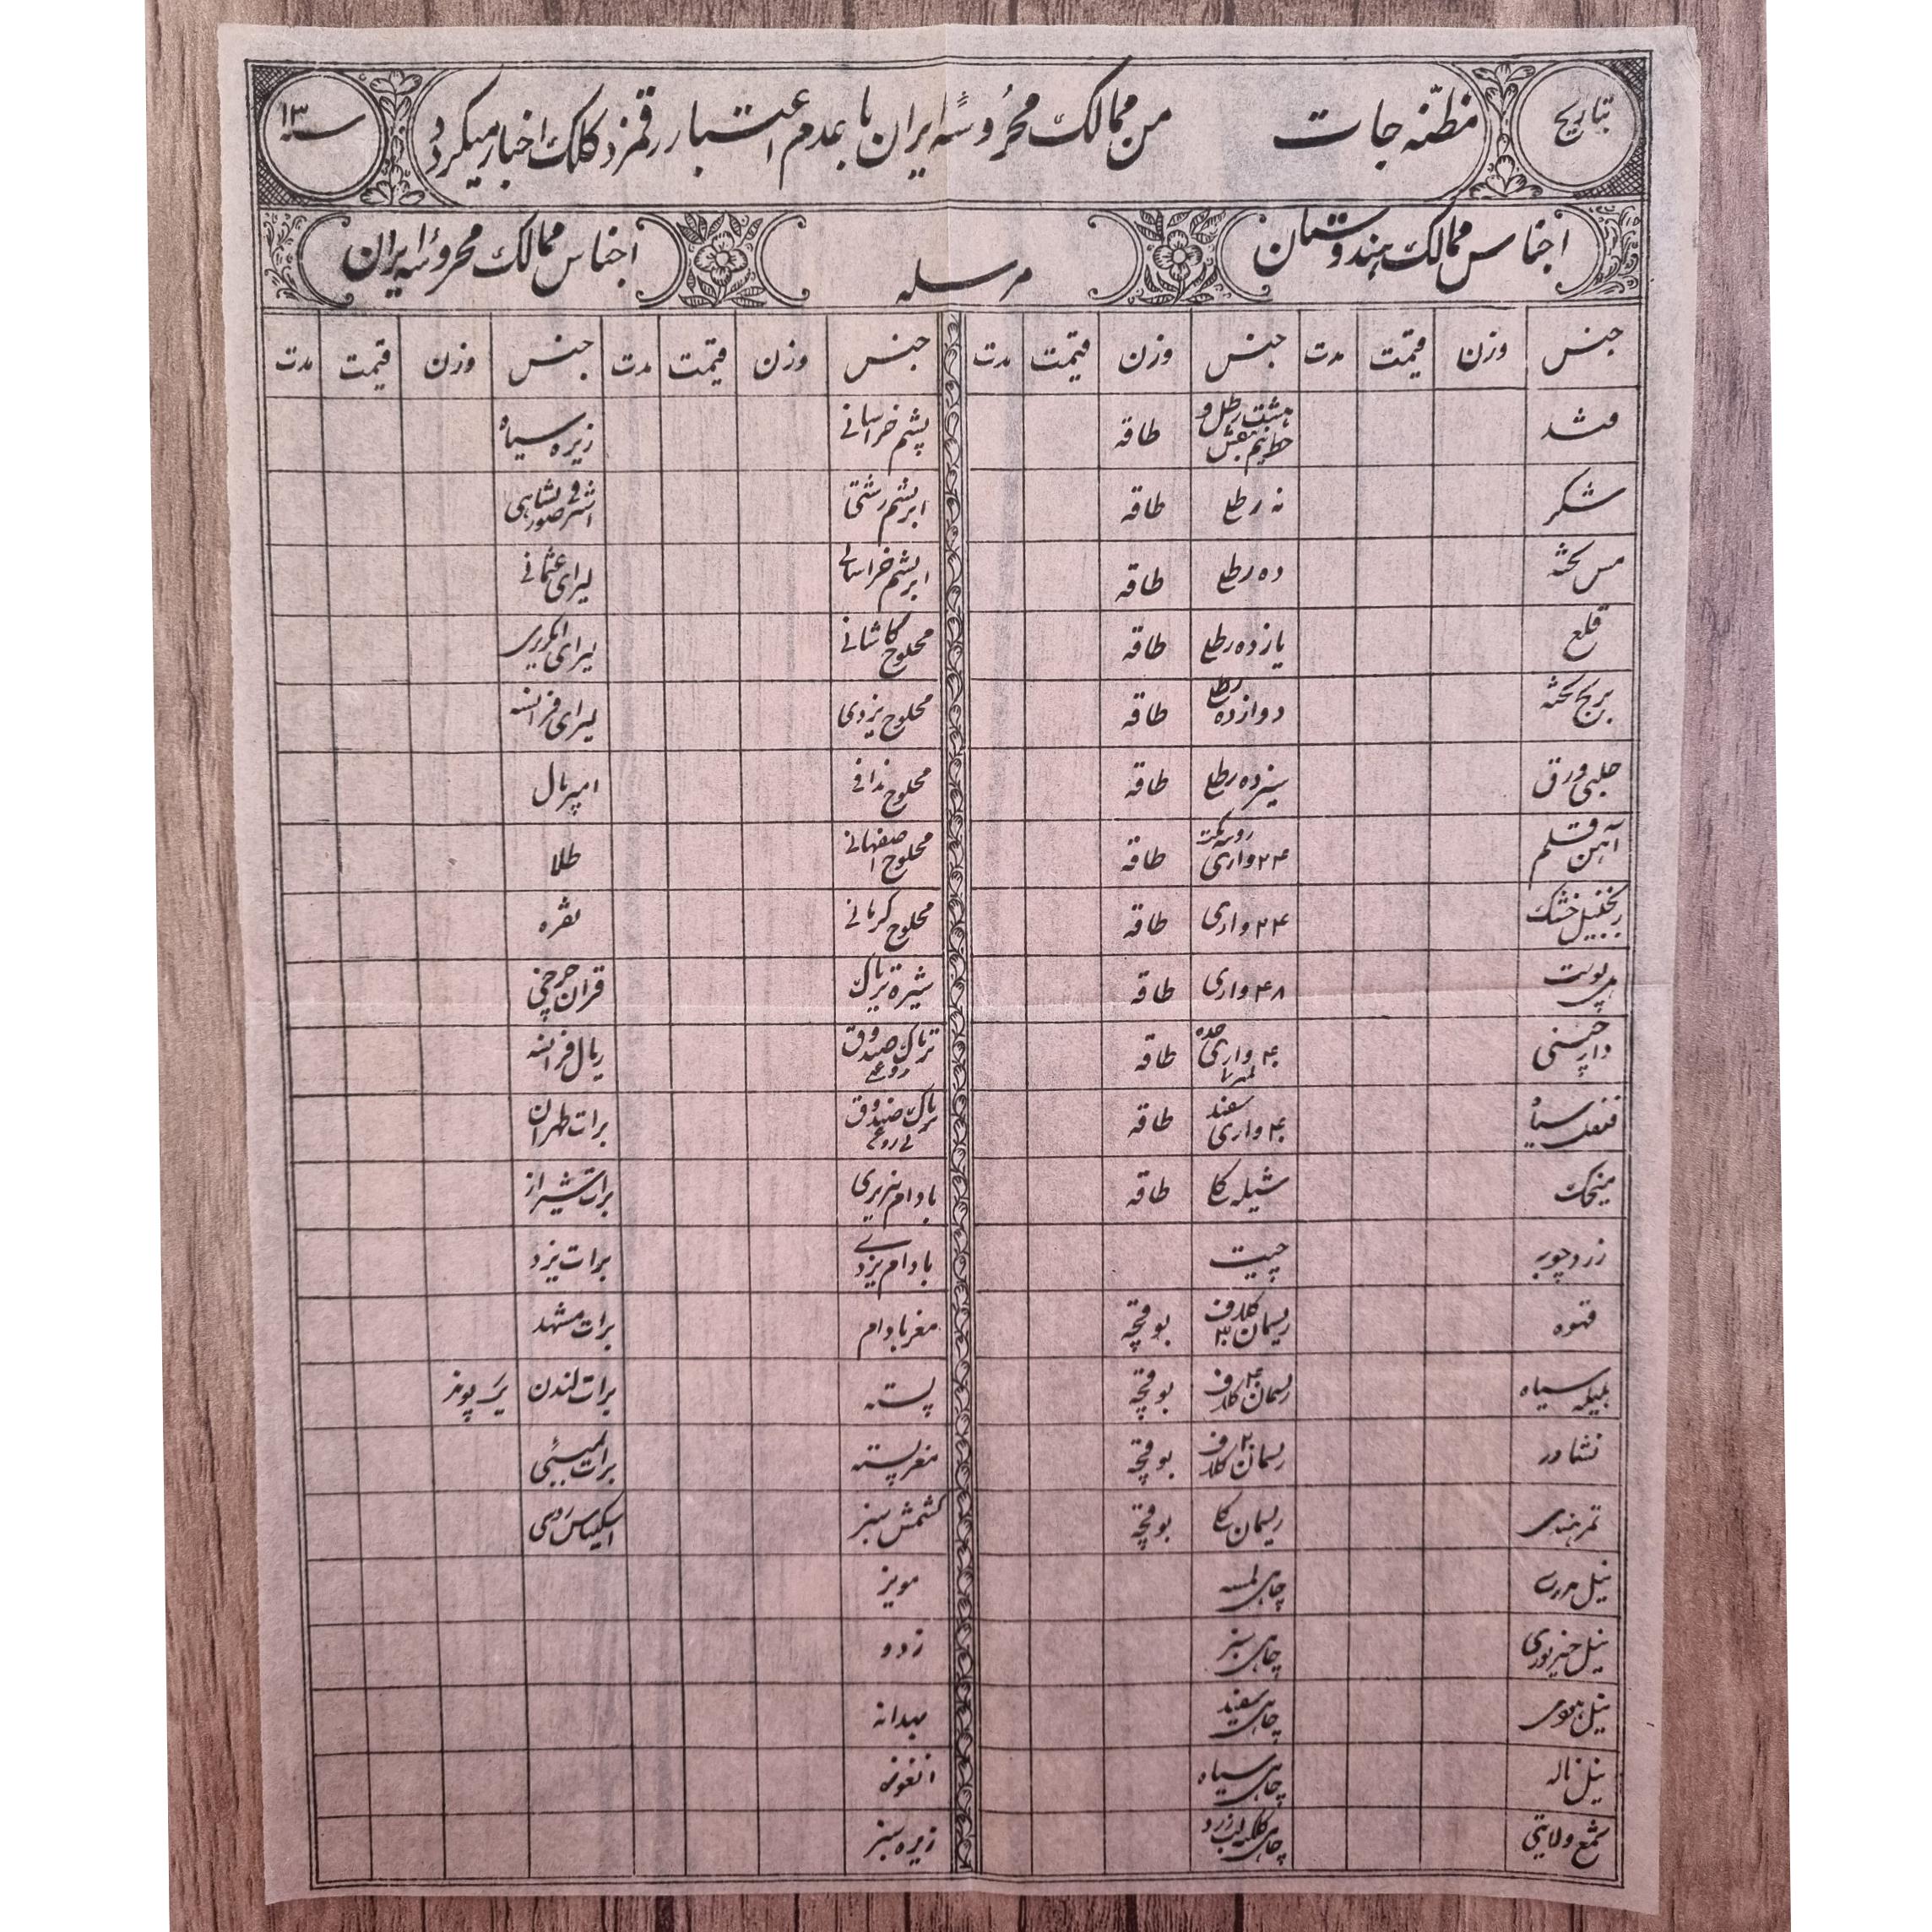 بتاریخ
مظنّه جات من ممالک محروسهٔ ایران با عدم اعتبار رقمزد کلک اخبار میگردد
سنه ۱۳
اجناس ممالک هندوستان
مرسله
اجناس ممالک محروسهٔ ایران
جنس وزن قیمت مدت جنس وزن قیمت مدت جنس وزن قیمت مدت جنس وزن قیمت مدت
قند هشت رطل و طاقه پشم خراسانی زیره سیاه
شکر نه رطل طاقه ابریشم رشتی اشرفی
مس تخته ده رطل طاقه ابریشم خراسانی لیرای عثمانی
قلع یازده رطل طاقه محلوج کاشانی لیرای انگریزی
برنج تخته دوازده رطل طاقه محلوج یزدی لیرای فرانسه
حلبی ورق سیزده رطل طاقه محلوج امپریال
آهن قلم ۲۴ واری طاقه محلوج اصفهانی طلا
زنجفیل خشک ۲۴ واری طاقه محلوج کرمانی نقره
هل پوست ۴۸ واری طاقه شیره تریاک قران چرخی
دارچینی ۴۰ واری طاقه تریاک صندوق روغنی ریال فرانسه
فلفل سیاه ۴۰ واری سفید طاقه تریاک صندوق بی روغن برات طهران
میخک شیله کا طاقه بادام برات شیراز
زردچوبه چیت بادام یزدی برات یزد
قهوه ریسمان کلاف ۳۰ بوقچه مغز بادام برات مشهد
هلیله سیاه ریسمان کلاف ۴۰ بوقچه پسته برات لندن یک پوند
نشادر ریسمان کلاف ۲۰ بوقچه مغز پسته برات بمبئی
تمر هندی ریسمان کا بوقچه کشمش سبز اسکناس روسی
نیل چاهی مویز
نیل چاهی سبز زدو
نیل چاهی سفید بهدانه
نیل چاهی سیاه انغوزه
شمع ولایتی چاهی زیره سبز